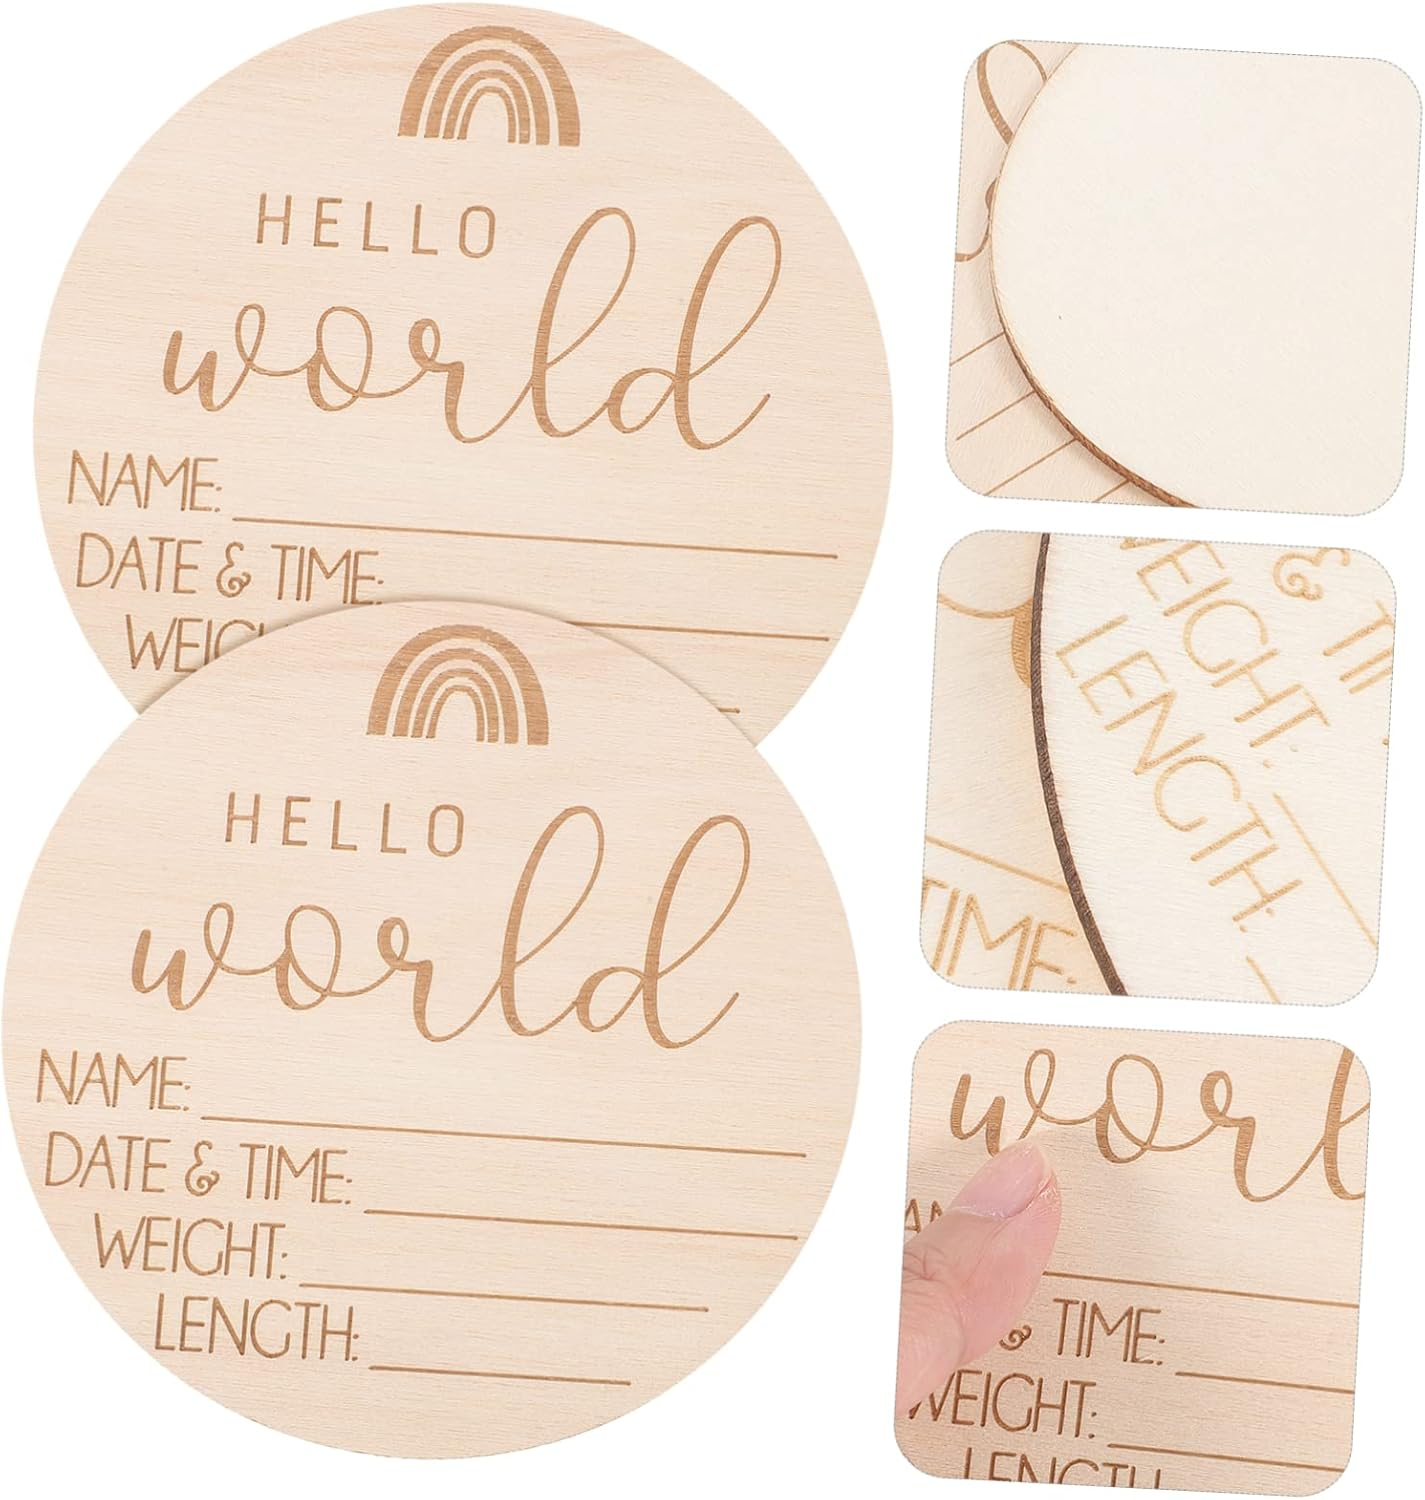 HELLO
world
NAME:
DATE & TIME:
HELLO
world
NAME:
DATE & TIME:
WEIGHT:
LENGTH:
& TI
WEIGHT:
LENGTH:
TIME:
worl
& TIME:
WEIGHT:
LENGTH